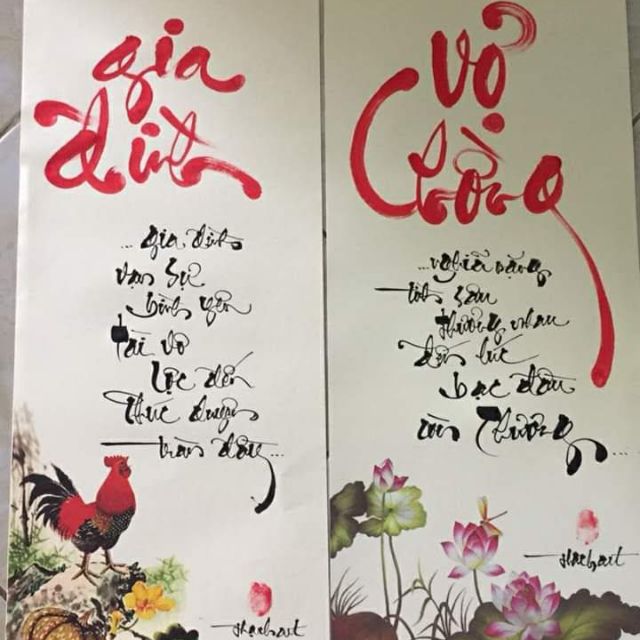 gia
đình
... gia đình
vạn sự
bình yên
tài vô
lộc đến
tràn đầy...
Vợ
Chồng
...nghĩa nặng
tình sâu
thương nhau
đến lúc
bạc đầu
còn thương...